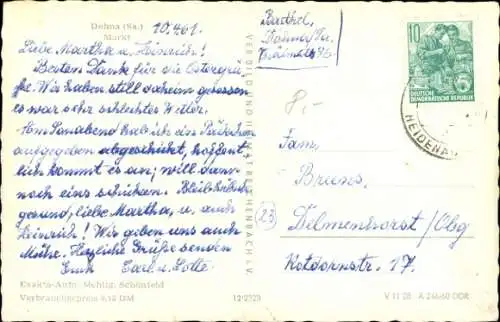 Dohna (Sa.)
Markt
10.4.61.
Liebe Martha u. Heinrich!
Besten Dank für die Ostergrü-
ße. Wir haben still daheim gesessen
es war sehr schlechtes Wetter.
Am Sonnabend hab ich ein Päckchen
aufgegeben abgeschickt, hoffent-
lich kommt es an, will dann
noch eins schicken. Bleibt
gesund, liebe Martha, u. auch
Heinrich! Wir geben uns auch
Mühe. Herzliche Grüße senden
Euch Carl u. Lotte
Exakta-Aufn. Mehlig, Schönfeld
Verbraucherpreis 0,12 DM
12/2323
VERLAG BILD UND HEIMAT REICHENBACH i. V.
Barthel,
Dohna/Sa.
10
DEUTSCHE
DEMOKRATISCHE REPUBLIK
HEIDENAU
Fam.
Brieses,
(23) Delmenhorst/Olbg
Rotdornstr. 17.
V 11 28 A 246/60 DDR